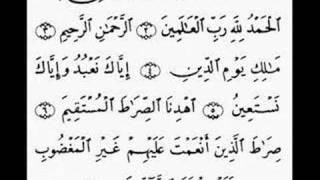 الْحَمْدُ لِلَّهِ رَبِّ الْعَالَمِينَ ﴿٢﴾ الرَّحْمَٰنِ الرَّحِيمِ ﴿٣﴾
مَالِكِ يَوْمِ الدِّينِ ﴿٤﴾ إِيَّاكَ نَعْبُدُ وَإِيَّاكَ
نَسْتَعِينُ ﴿٥﴾ اهْدِنَا الصِّرَاطَ الْمُسْتَقِيمَ ﴿٦﴾
صِرَاطَ الَّذِينَ أَنْعَمْتَ عَلَيْهِمْ غَيْرِ الْمَغْضُوبِ